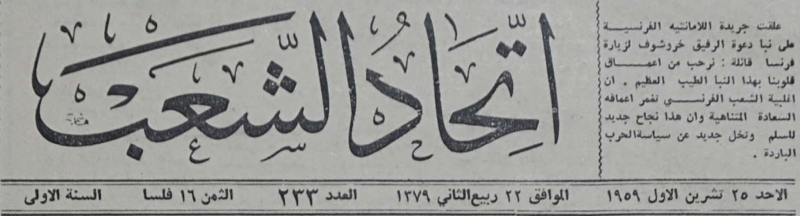 علقت جريدة اللامانتيه الفرنسية
على نبا دعوة الرفيق خروشوف لزيارة
فرنسا قائلة : نرحب من اعماق
قلوبنا بهذا النبا الطيب العظيم . ان
اغلبية الشعب الفرنسي تغمر اعماقه
السعادة المتناهية وان هذا نجاح جديد
للسلم وتخل جديد عن سياسة الحرب
الباردة .
اتحاد الشعب
الاحد ٢٥ تشرين الاول ١٩٥٩ الموافق ٢٢ ربيع الثاني ١٣٧٩ العدد ٢٣٣ الثمن ١٦ فلسا السنة الاولى